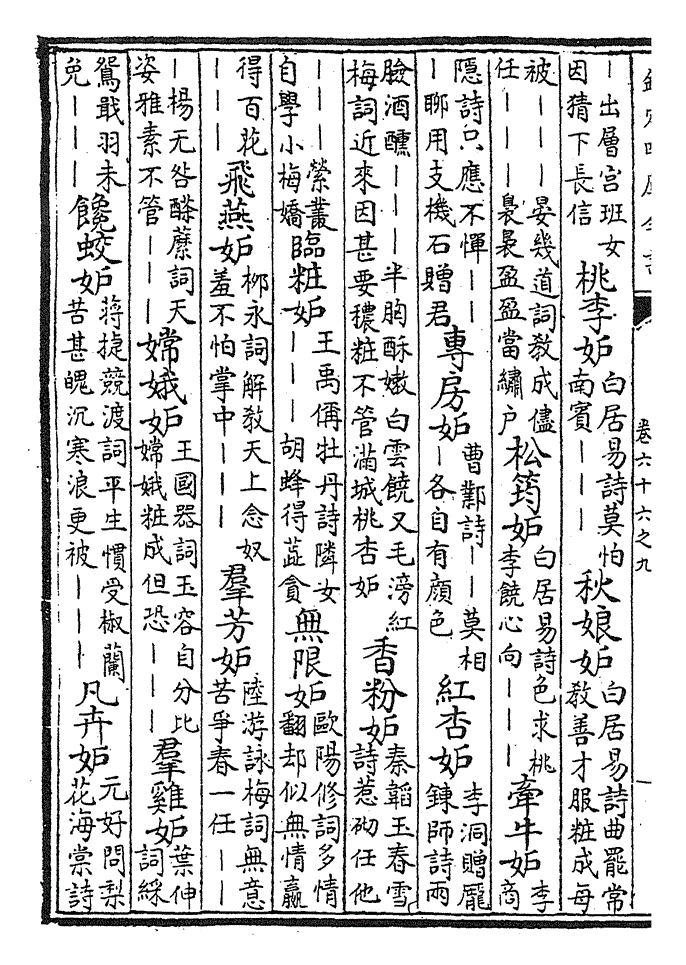 欽定四庫全書
卷六十六之九
丨出層宮班女因猜下長信 桃李妒 白居易詩莫怕南賓丨丨丨 秋娘妒 白居易詩曲罷常教善才服粧成每
被丨丨丨晏幾道詞教成儘任丨丨丨裊裊盈盈當繡戶 松筠妒 白居易詩色求桃李饒心向丨丨丨 牽牛妒 李商
隱詩只應不憚丨丨丨聊用支機石贈君 專房妒 曹鄴詩丨丨莫相丨各自有顏色 紅杏妒 李洞贈龐鍊師詩兩
臉酒醺丨丨丨半胸酥嫩白雲饒又毛滂紅梅詞近來因甚要穠粧不管滿城桃杏妒 香粉妒 秦韜玉春雪詩惹砌任他
丨丨丨縈叢自學小梅嬌 臨粧妒 王禹偁牡丹詩隣女丨丨丨胡蜂得蕋貪 無限妒 歐陽修詞多情翻却似無情贏
得百花丨丨丨 飛燕妒 柳永詞解教天上念奴羞不怕掌中丨丨丨 羣芳妒 陸游詠梅詞無意苦爭春一任丨丨
丨楊无咎酴醾詞天姿雅素不管丨丨丨 嫦娥妒 王國器詞玉容自分比嫦娥粧成但恐丨丨丨 羣雞妒 葉伸詞綵
鴛戢羽未免丨丨丨 饞蛟妒 蔣捷競渡詞平生慣受椒蘭苦甚魄沉寒浪更被丨丨丨 凡卉妒 元好問梨花海棠詩